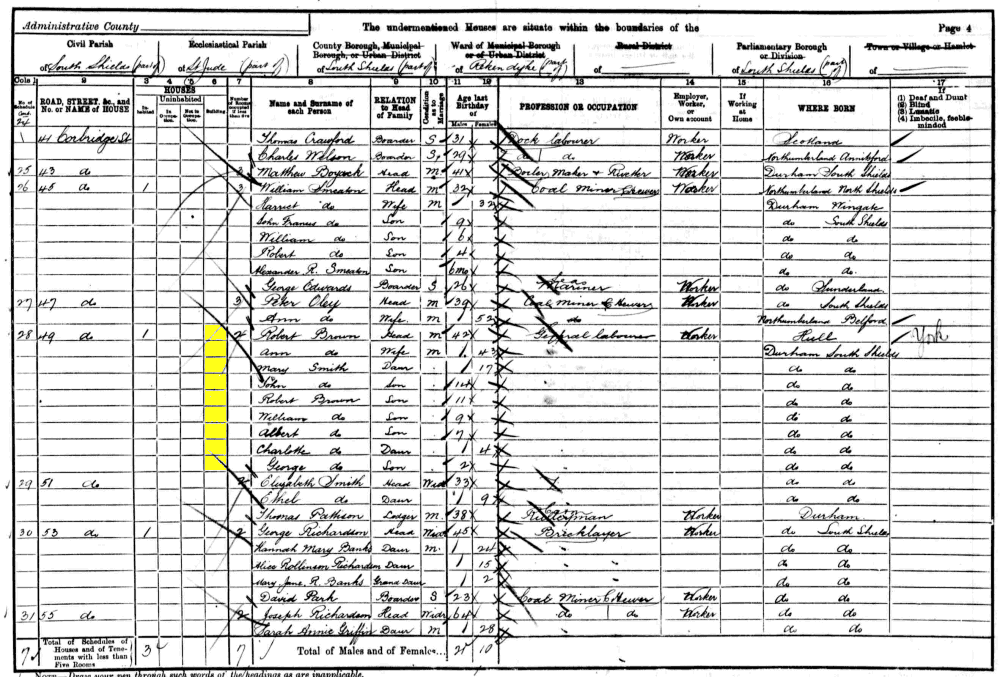 Administrative County The undermentioned Houses are situate within the boundaries of the Page 4
Civil Parish Ecclesiastical Parish County Borough, Municipal Borough, or Urban District Ward of Municipal Borough or of Urban District Rural District Parliamentary Borough or Division Town or Village or Hamlet
of South Shields (part of) of St Jude (part of) of South Shields (part of) of Reken dyke (part of) of of South Shields (part of) of
Cols 1 2 3 4 5 6 7 8 9 10 11 12 13 14 15 16 17
No. of Schedule ROAD, STREET, &c., and No. or NAME of HOUSE HOUSES Inhabited Uninhabited In Occupation. Not in Occupation. Building Number of Rooms if less than five Name and Surname of each Person RELATION to Head of Family Condition as to Marriage Age last Birthday of Males Females PROFESSION OR OCCUPATION Employer, Worker, or Own account If Working at Home WHERE BORN If (1) Deaf and Dumb (2) Blind (3) Lunatic (4) Imbecile, feeble-minded
41 Corbridge St Thomas Crawford Boarder S 31 Dock labourer Worker Scotland
Charles Wilson Boarder S 29 do do Worker Northumberland
25 43 do Matthew Head M 41 Boiler Maker + Riveter Worker Durham South Shields
26 45 do 1 3 William Smeaton Head M 32 Coal Miner Hewer Worker Northumberland North Shields
Harriet do Wife M 32 Durham Wingate
John Francis do Son 9 do South Shields
William do Son 6 do do
Robert do Son 4 do do
Alexander R. Smeaton Son 6mo do do.
George Edwards Boarder S 26 Mariner Worker do Sunderland
27 47 do 3 Peter Oley Head M 39 Coal Miner Hewer Worker do South Shields
Ann do Wife M 52 do Northumberland Belford
28 49 do 1 2 Robert Brown Head M 42 General labourer Worker Hull York
Ann do Wife M 43 Durham South Shields
Mary Smith Daur 17 do do
John do Son 14 do do
Robert Brown Son 11 do do
William do Son 9 do do
Albert do Son 7 do do
Charlotte do Daur 4 do do
George do Son 2 do do
29 51 do 2 Elizabeth Smith Head Wid 33 do do
Ethel do Daur 9 do do
Thomas Pattison Lodger M 38 Worker Durham
30 53 do 1 2 George Richardson Head Widr 45 Bricklayer Worker do South Shields
Hannah Mary Banks Daur M 20 do do
Alice Rollinson Richardson Daur 15 do do
Mary Jane. R. Banks Grand Daur 2 do do
David Park Boarder S 23 Coal Miner Hewer Worker do do
31 55 do 2 Joseph Richardson Head Widr 64 do do Worker do do
Sarah Annie Griffin Daur M 28 do do
7 Total of Schedules of Houses and of Tenements with less than Five Rooms 3 7 Total of Males and of Females... 21 10
NOTE—Draw your pen through such words of the headings as are inapplicable.